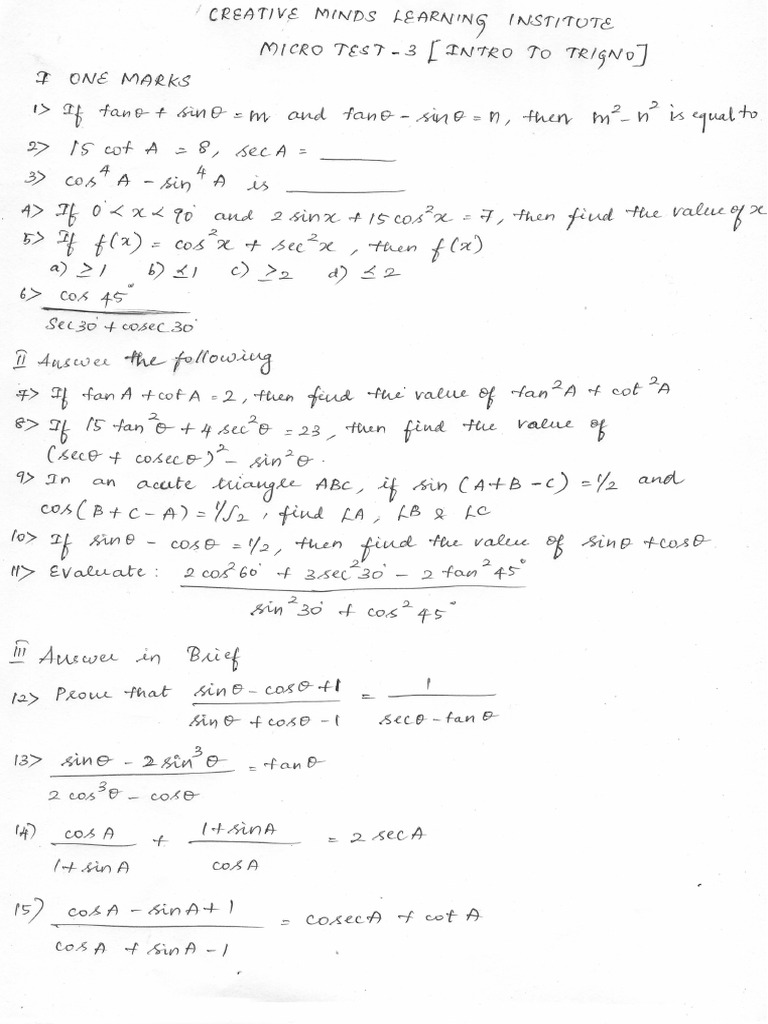 CREATIVE MINDS LEARNING INSTITUTE
MICRO TEST-3 [INTRO TO TRIGNO]
I ONE MARKS
1> If tanθ + sinθ = m and tanθ - sinθ = n, then m² - n² is equal to
2> 15 cot A = 8, sec A = ______
3> cos⁴ A - sin⁴ A is ________
4> If 0° < x < 90° and 2 sinx + 15 cos²x = 7, then find the value of x
5> If f(x) = cos²x + sec²x, then f(x)
a) ≥1 b) ≤1 c) ≥2 d) ≤2
6> cos 45°
sec 30° + cosec 30°
II Answer the following
7> If tan A + cot A = 2, then find the value of tan²A + cot²A
8> If 15 tan²θ + 4 sec²θ = 23, then find the value of
(secθ + cosecθ)² - sin²θ.
9> In an acute triangle ABC, if sin (A+B-C) = 1/2 and
cos(B+C-A) = 1/√2, find ∠A, ∠B & ∠C
10> If sinθ - cosθ = 1/2, then find the value of sinθ + cosθ
11> Evaluate: 2 cos²60° + 3 sec²30° - 2 tan²45°
sin²30° + cos²45°
III Answer in Brief
12> Prove that sinθ - cosθ + 1 = 1
sinθ + cosθ - 1 secθ - tanθ
13> sinθ - 2 sin³θ = tanθ
2 cos³θ - cosθ
14) cos A + 1 + sin A = 2 sec A
1 + sin A cos A
15) cos A - sin A + 1 = cosec A + cot A
cos A + sin A - 1